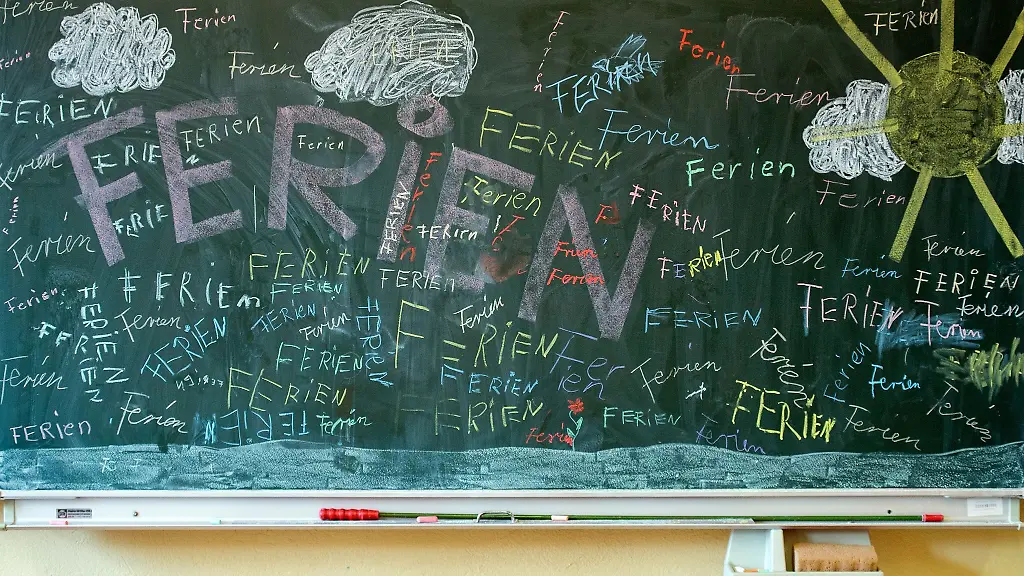 Ferien
Ferien
FERIEN
FERIEN
Ferien
Ferien
Ferien
FERIEN
Ferien
Ferien
FERiEN
FERiEN
FERiEN
FERIEN
Ferien
FERIEN
Ferien
Ferien
Ferien
Ferien
FERIEN
Ferien
Ferien
FERIEN
FERIEN
Ferien
Ferien
Ferien
FERIEN
Ferien
Ferien
FERIEN
FERIEN
FERIEN
Ferien
FERIEN
FERIEN
Ferien
FERIEN
Ferien
Ferien
FERIEN
FERIEN
Ferien
FERIEN
FERIEN
Ferien
Ferien
FERIEN
FERIEN
Ferien
Ferien
Ferien
FERIEN
FERIEN
FERIEN
Ferien
FERIEN
Ferien
FERIEN
Ferien
Ferien
FERIEN
Ferien
Ferien